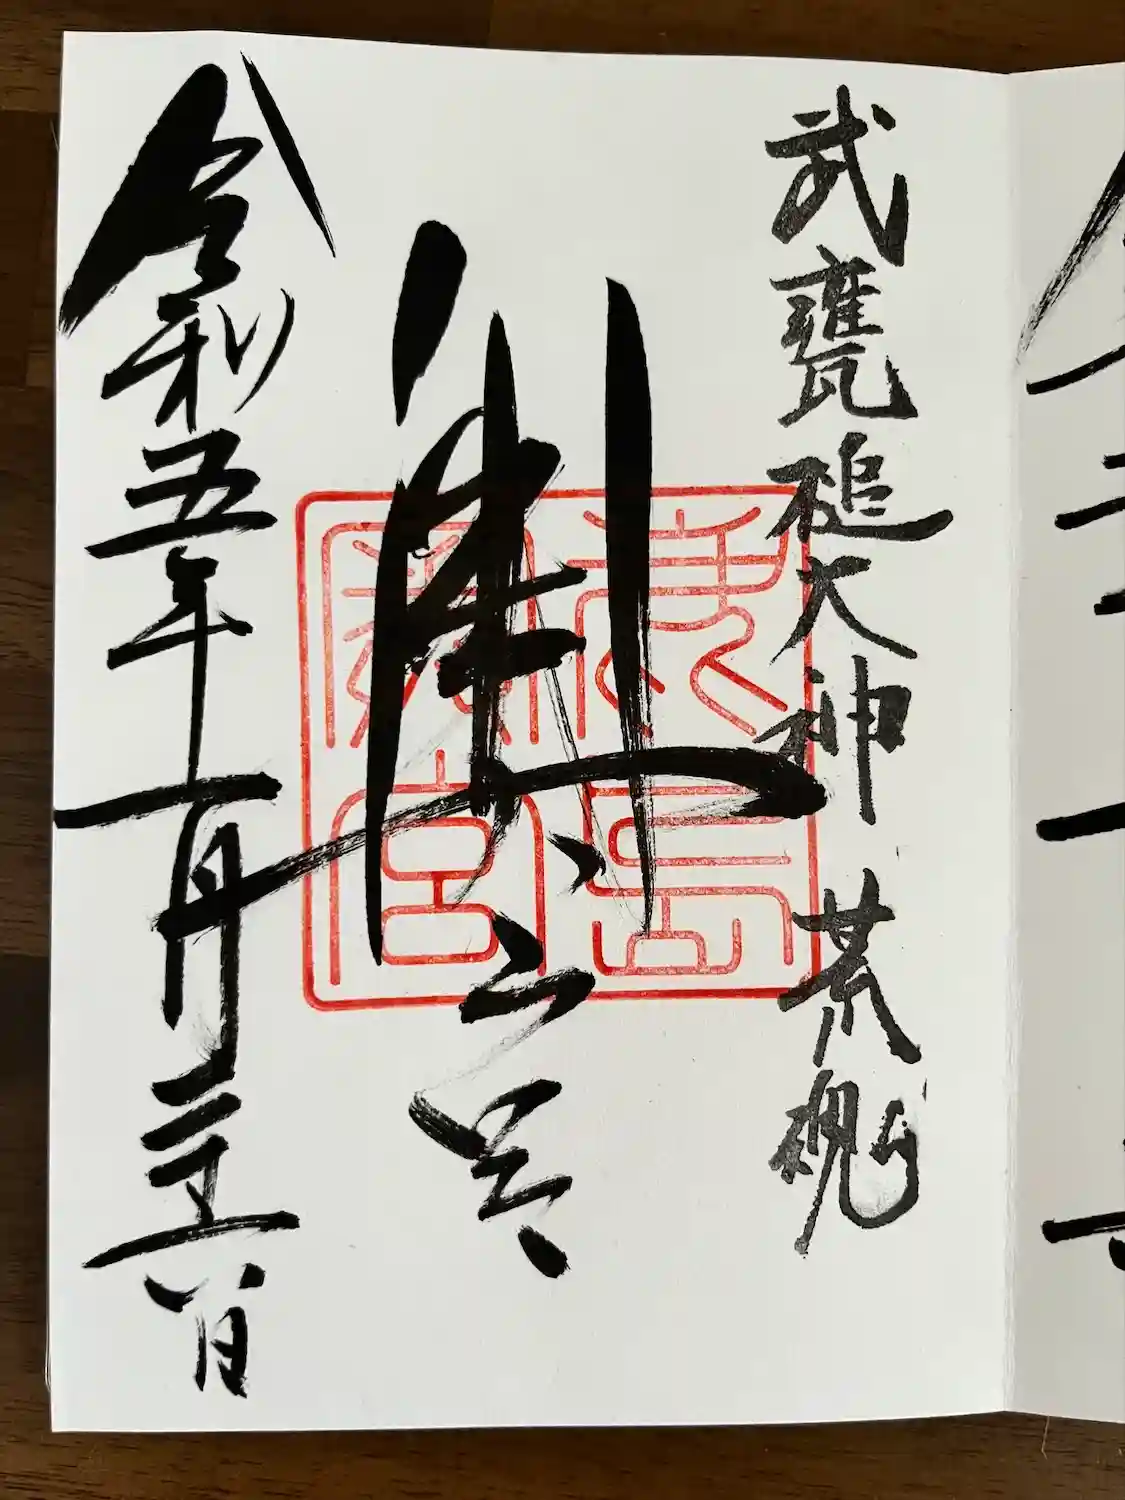 武甕槌大神 荒魂
奥宮
鹿島
奥宮
令和五年一月二十六日